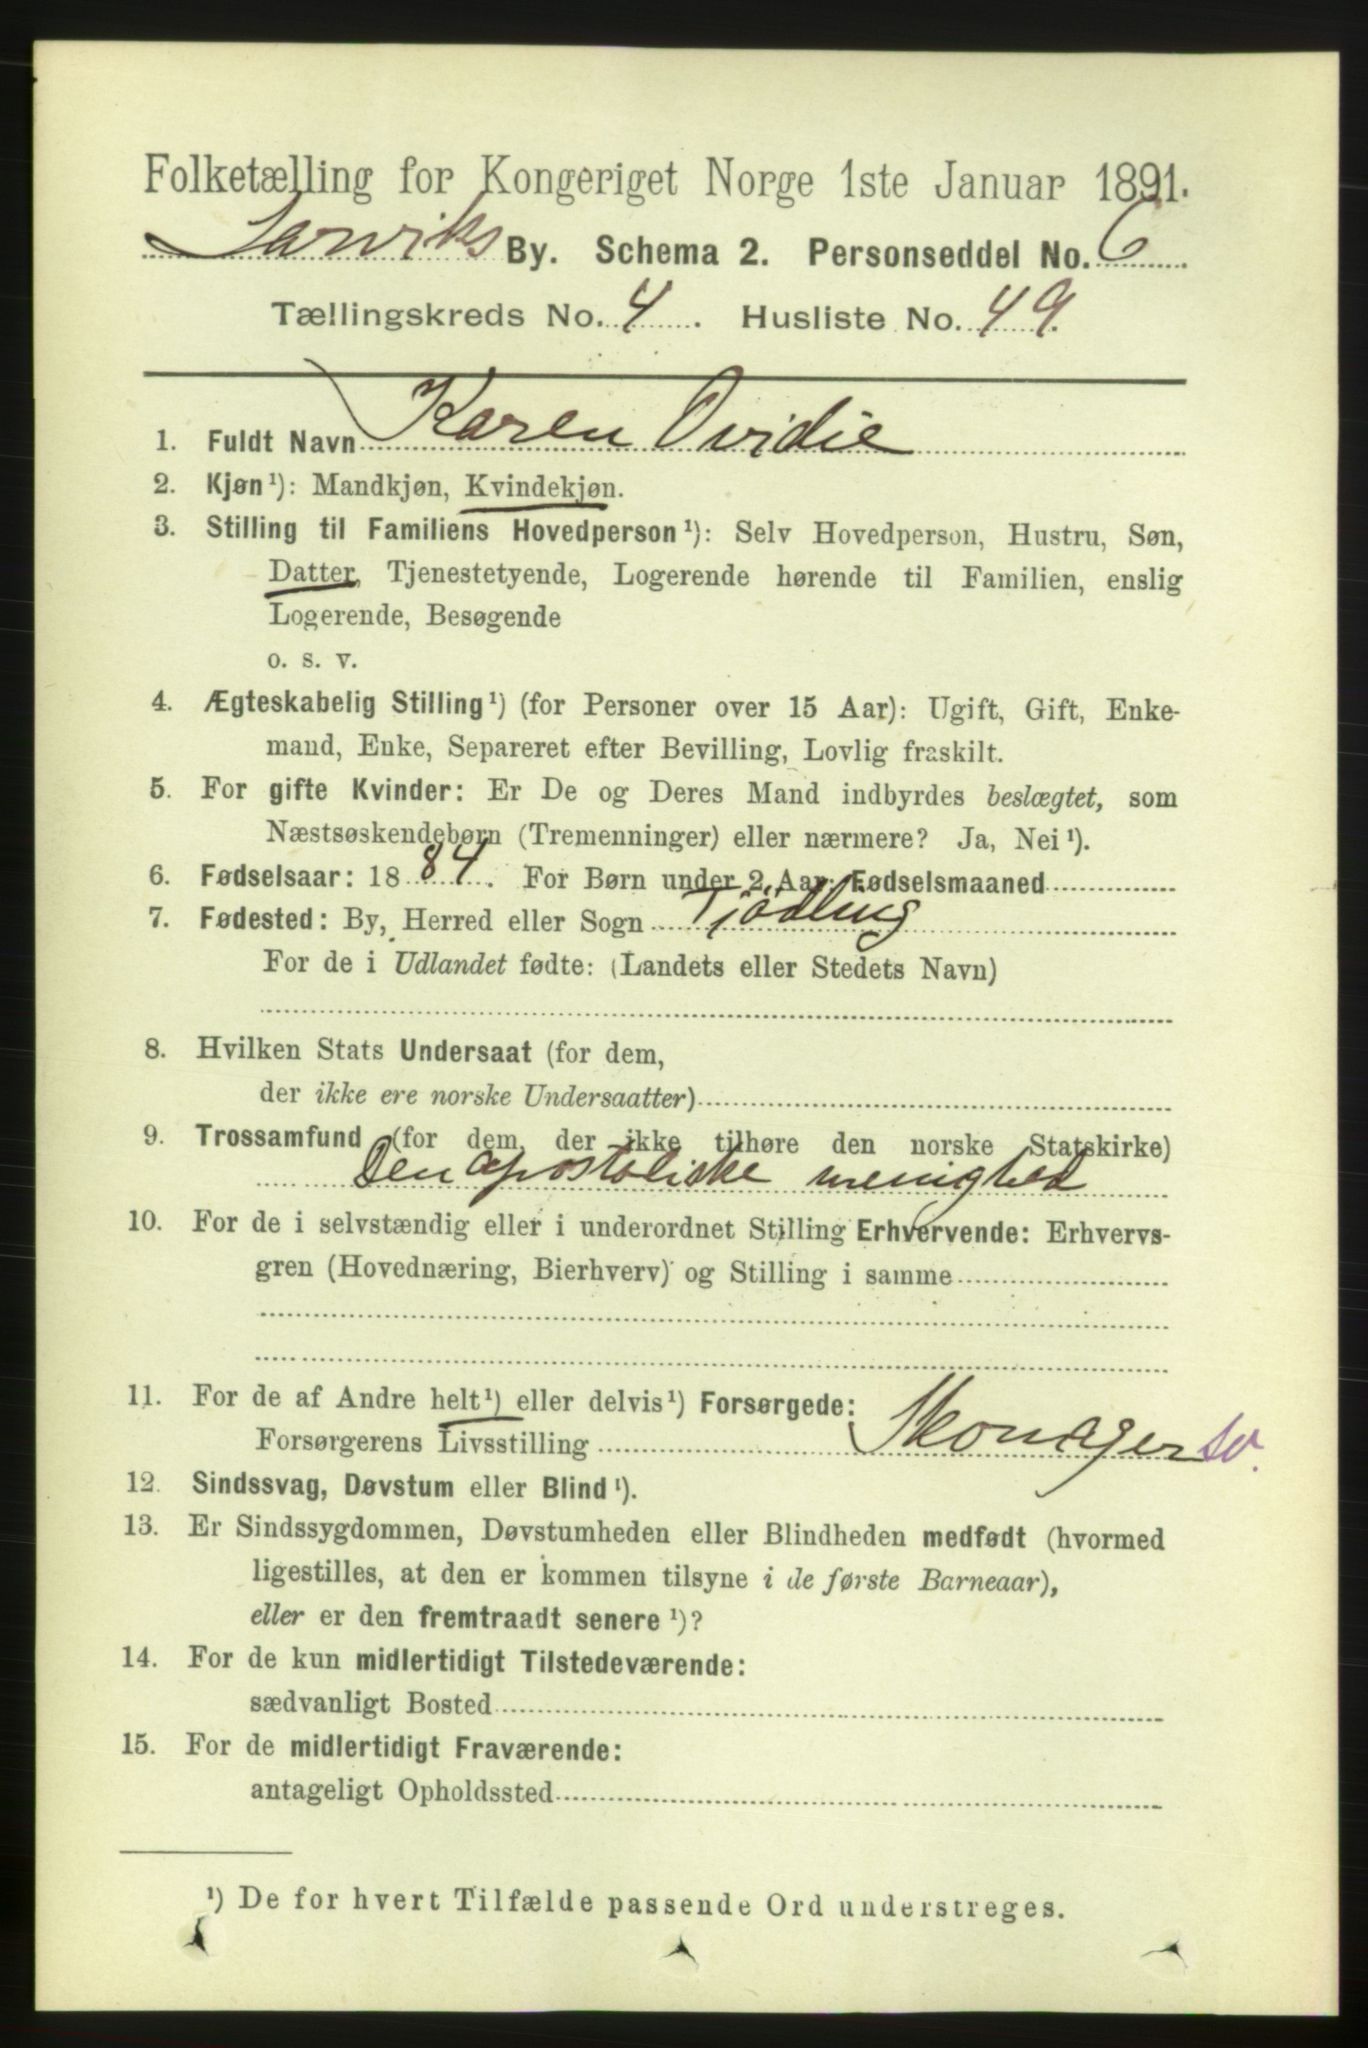 Folketælling for Kongeriget Norge 1ste Januar 1891.
Larviks By. Schema 2. Personseddel No. 6
Tællingskreds No. 4. Husliste No. 49.
1. Fuldt Navn Karen Ovidie
2. Kjøn¹): Mandkjøn, Kvindekjøn.
3. Stilling til Familiens Hovedperson¹): Selv Hovedperson, Hustru, Søn,
Datter, Tjenestetyende, Logerende hørende til Familien, enslig
Logerende, Besøgende
o. s. v.
4. Ægteskabelig Stilling¹) (for Personer over 15 Aar): Ugift, Gift, Enke-
mand, Enke, Separeret efter Bevilling, Lovlig fraskilt.
5. For gifte Kvinder: Er De og Deres Mand indbyrdes beslægtet, som
Næstsøskendebørn (Tremenninger) eller nærmere? Ja, Nei¹).
6. Fødselsaar: 1884. For Børn under 2 Aar: Fødselsmaaned
7. Fødested: By, Herred eller Sogn Tjödling
For de i Udlandet fødte: (Landets eller Stedets Navn)
8. Hvilken Stats Undersaat (for dem,
der ikke ere norske Undersaatter)
9. Trossamfund (for dem, der ikke tilhøre den norske Statskirke)
Den apostoliske menighed
10. For de i selvstændig eller i underordnet Stilling Erhvervende: Erhvervs-
gren (Hovednæring, Bierhverv) og Stilling i samme
11. For de af Andre helt¹) eller delvis¹) Forsørgede:
Forsørgerens Livsstilling Skomager
12. Sindssvag, Døvstum eller Blind¹).
13. Er Sindssygdommen, Døvstumheden eller Blindheden medfødt (hvormed
ligestilles, at den er kommen tilsyne i de første Barneaar),
eller er den fremtraadt senere¹)?
14. For de kun midlertidigt Tilstedeværende:
sædvanligt Bosted
15. For de midlertidigt Fraværende:
antageligt Opholdssted
¹) De for hvert Tilfælde passende Ord understreges.